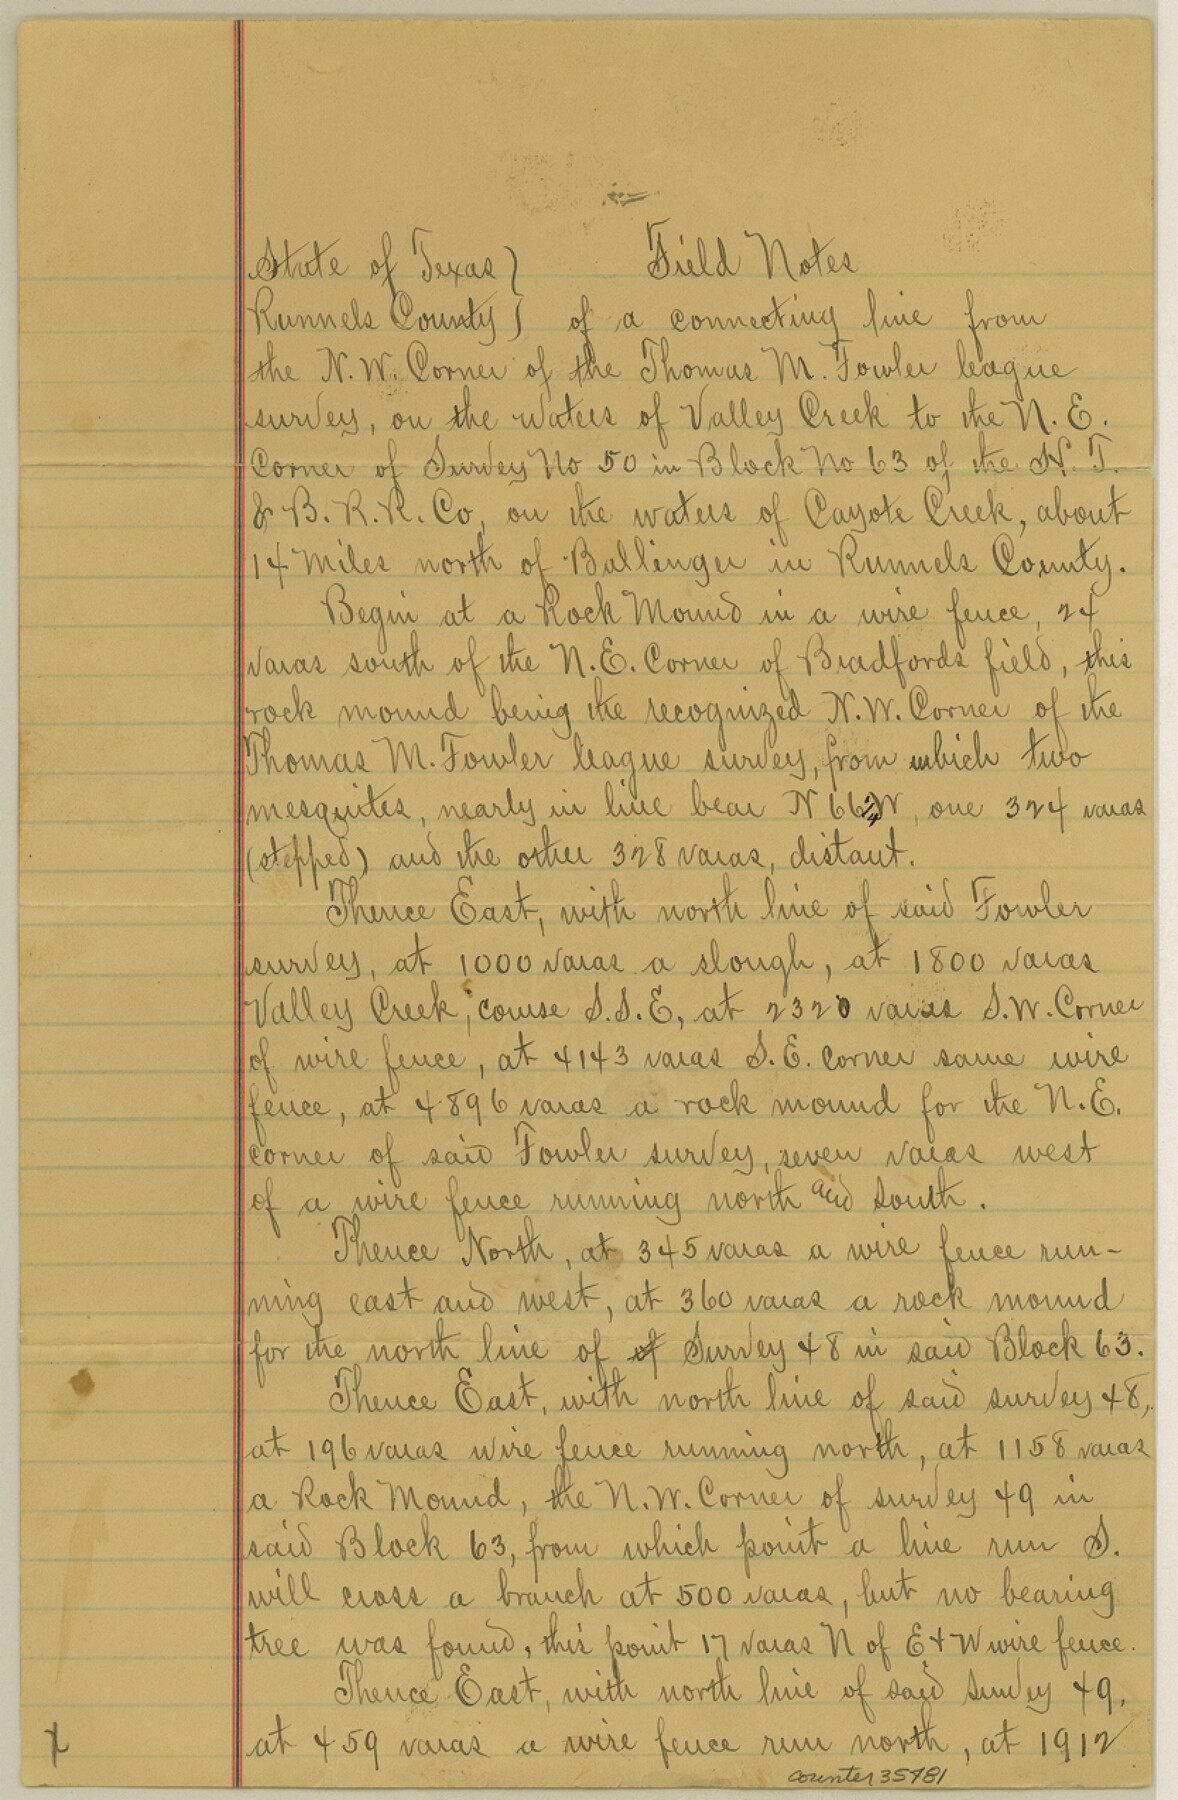 State of Texas } Field Notes
Runnels County } of a connecting line from
the N.W. Corner of the Thomas M. Fowler league
survey, on the waters of Valley Creek to the N.E.
Corner of Survey No 50 in Block No 63 of the H. T.
& B. R. R. Co, on the waters of Cayote Creek, about
14 miles north of Ballinger in Runnels County.
Begin at a Rock Mound in a wire fence, 24
varas south of the N.E. Corner of Bradfords field, this
rock mound being the recognized N.W. Corner of the
Thomas M. Fowler league survey, from which two
mesquites, nearly in line bear N 66 1/4 W, one 324 varas
(stepped) and the other 328 varas, distant.
Thence East, with north line of said Fowler
survey, at 1000 varas a slough, at 1800 varas
Valley Creek, course S.S.E, at 2320 varas S.W. Corner
of wire fence, at 4143 varas S.E. corner same wire
fence, at 4896 varas a rock mound for the N.E.
corner of said Fowler survey, seven varas west
of a wire fence running north and south.
Thence North, at 345 varas a wire fence run-
ning east and west, at 360 varas a rock mound
for the north line of of Survey 48 in said Block 63.
Thence East, with north line of said survey 48,
at 196 varas wire fence running north, at 1158 varas
a Rock Mound, the N.W. Corner of survey 49 in
said Block 63, from which point a line run S.
will cross a branch at 500 varas, but no bearing
tree was found, this point 17 varas N of E & W wire fence.
Thence East, with north line of said survey 49,
at 459 varas a wire fence run north, at 1912
counter 35481